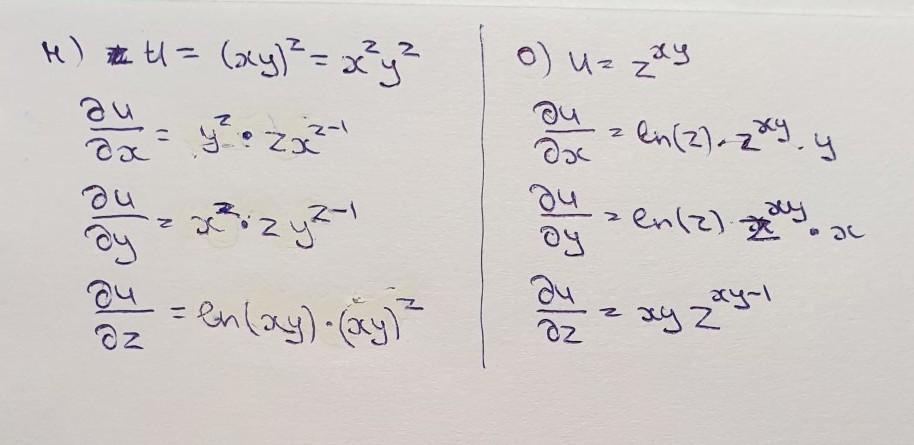 н) u = (xy)^z = x^z y^z
∂u/∂x = y^z · zx^{z-1}
∂u/∂y = x^z · zy^{z-1}
∂u/∂z = ln(xy) · (xy)^z
о) u = z^{xy}
∂u/∂x = ln(z) · z^{xy} · y
∂u/∂y = ln(z) · z^{xy} · x
∂u/∂z = xy z^{xy-1}